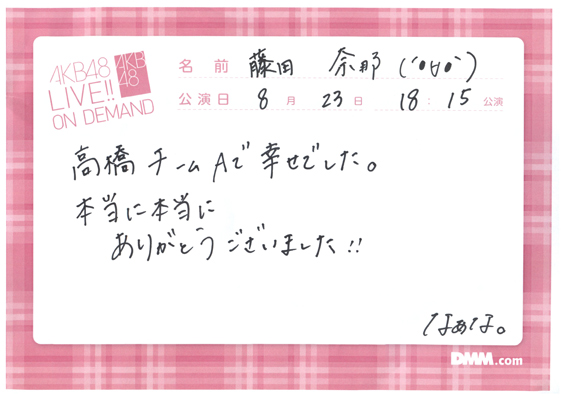 AKB48
LIVE!!
ON DEMAND
AKB
48
名前 藤田 奈那 (´•∀•`)
公演日 8月 23日 18:15公演
高橋チームAで幸せでした。
本当に本当に
ありがとうございました!!
なぁな。
DMM.com